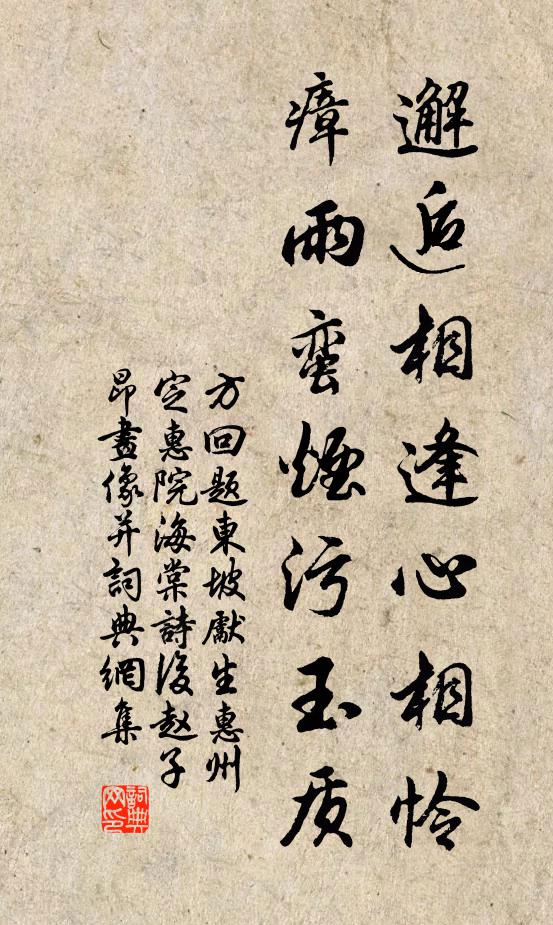 邂逅相逢心相怜
瘴雨蛮煙污玉质
方回题東坡獻生惠州
定惠院海棠詩後赵子
昂畫像并詞典網集
詞典网印